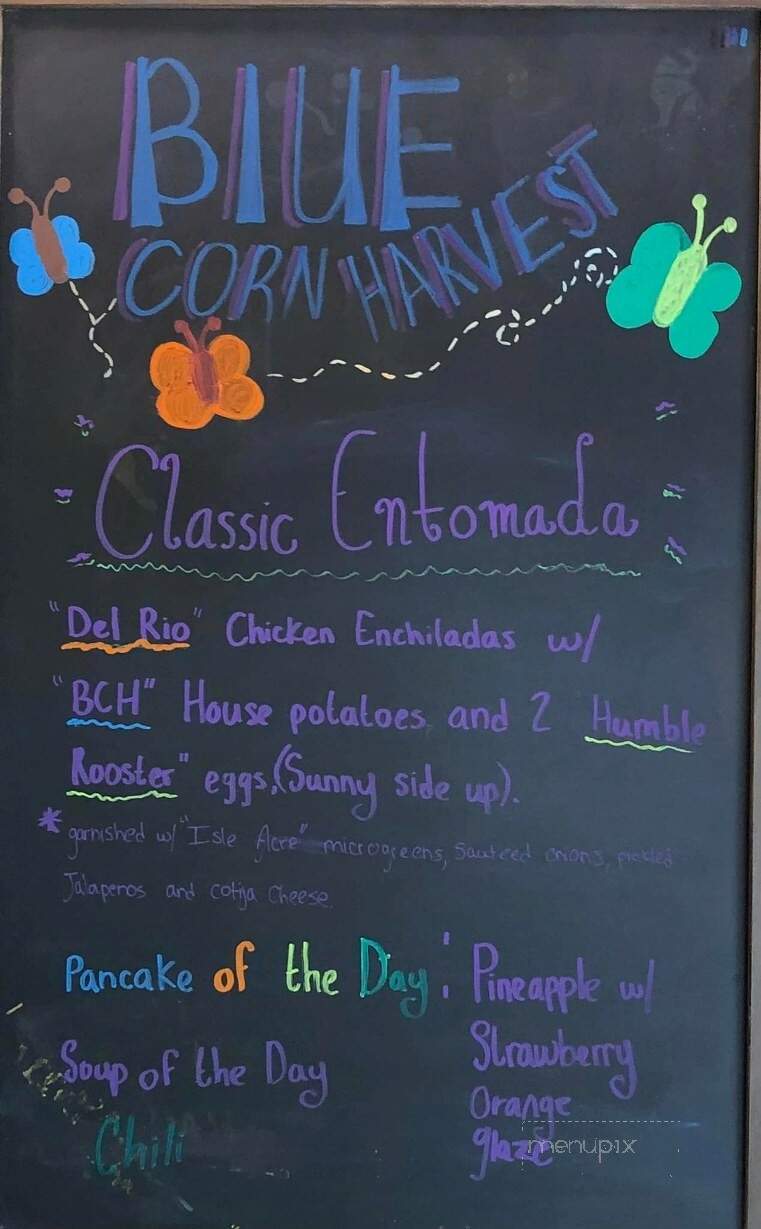 BLUE
CORN HARVEST
Classic Entomada
"Del Rio" Chicken Enchiladas w/
"BCH" House potatoes and 2 Humble
Rooster" eggs,(Sunny side up).
* garnished w/ "Isle Acre" microgreens, Sauteed onions, pickled
Jalapenos and cotija cheese.
Pancake of the Day: Pineapple w/
Strawberry
Orange
glaze
Soup of the Day
Chili
menupix